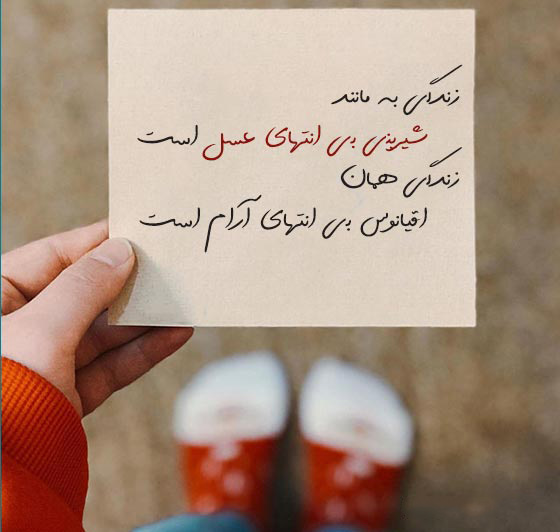 زندگی به مانند
شیرینی بی انتهای عسل است
زندگی همان
اقیانوس بی انتهای آرام است